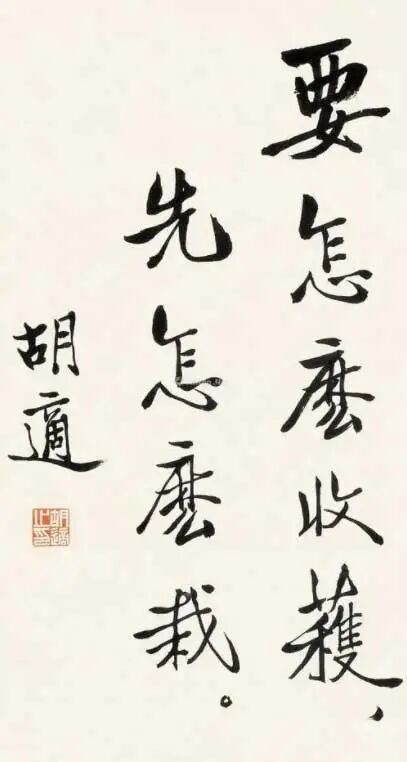 要怎麼收穫、
先怎麼栽。
胡適
胡適之印